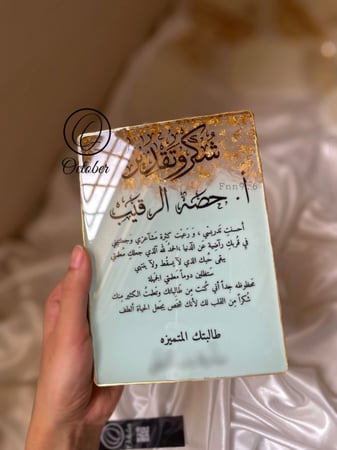 October
شكر وتقدير
Fnn926
أ. حصه الرقيب
أحسنتِ تدريسي ، و رَعيت كثرة مشاعري وجعلتيني
في قربكِ راضية عن الدنيا ، الحمدُ لله الذي جعلكِ معلمتي
يبقى حبك الذي لا يسقط ولا ينتهي
ستظلين دوماً معلمتي الجميلة
محظوظه جداً أني كُنت من طالباتك وتعلمتُ الكثير منك
شكراً من القلب لك لأنك شخص يجعل الحياة ألطف
طالبتك المتميزه